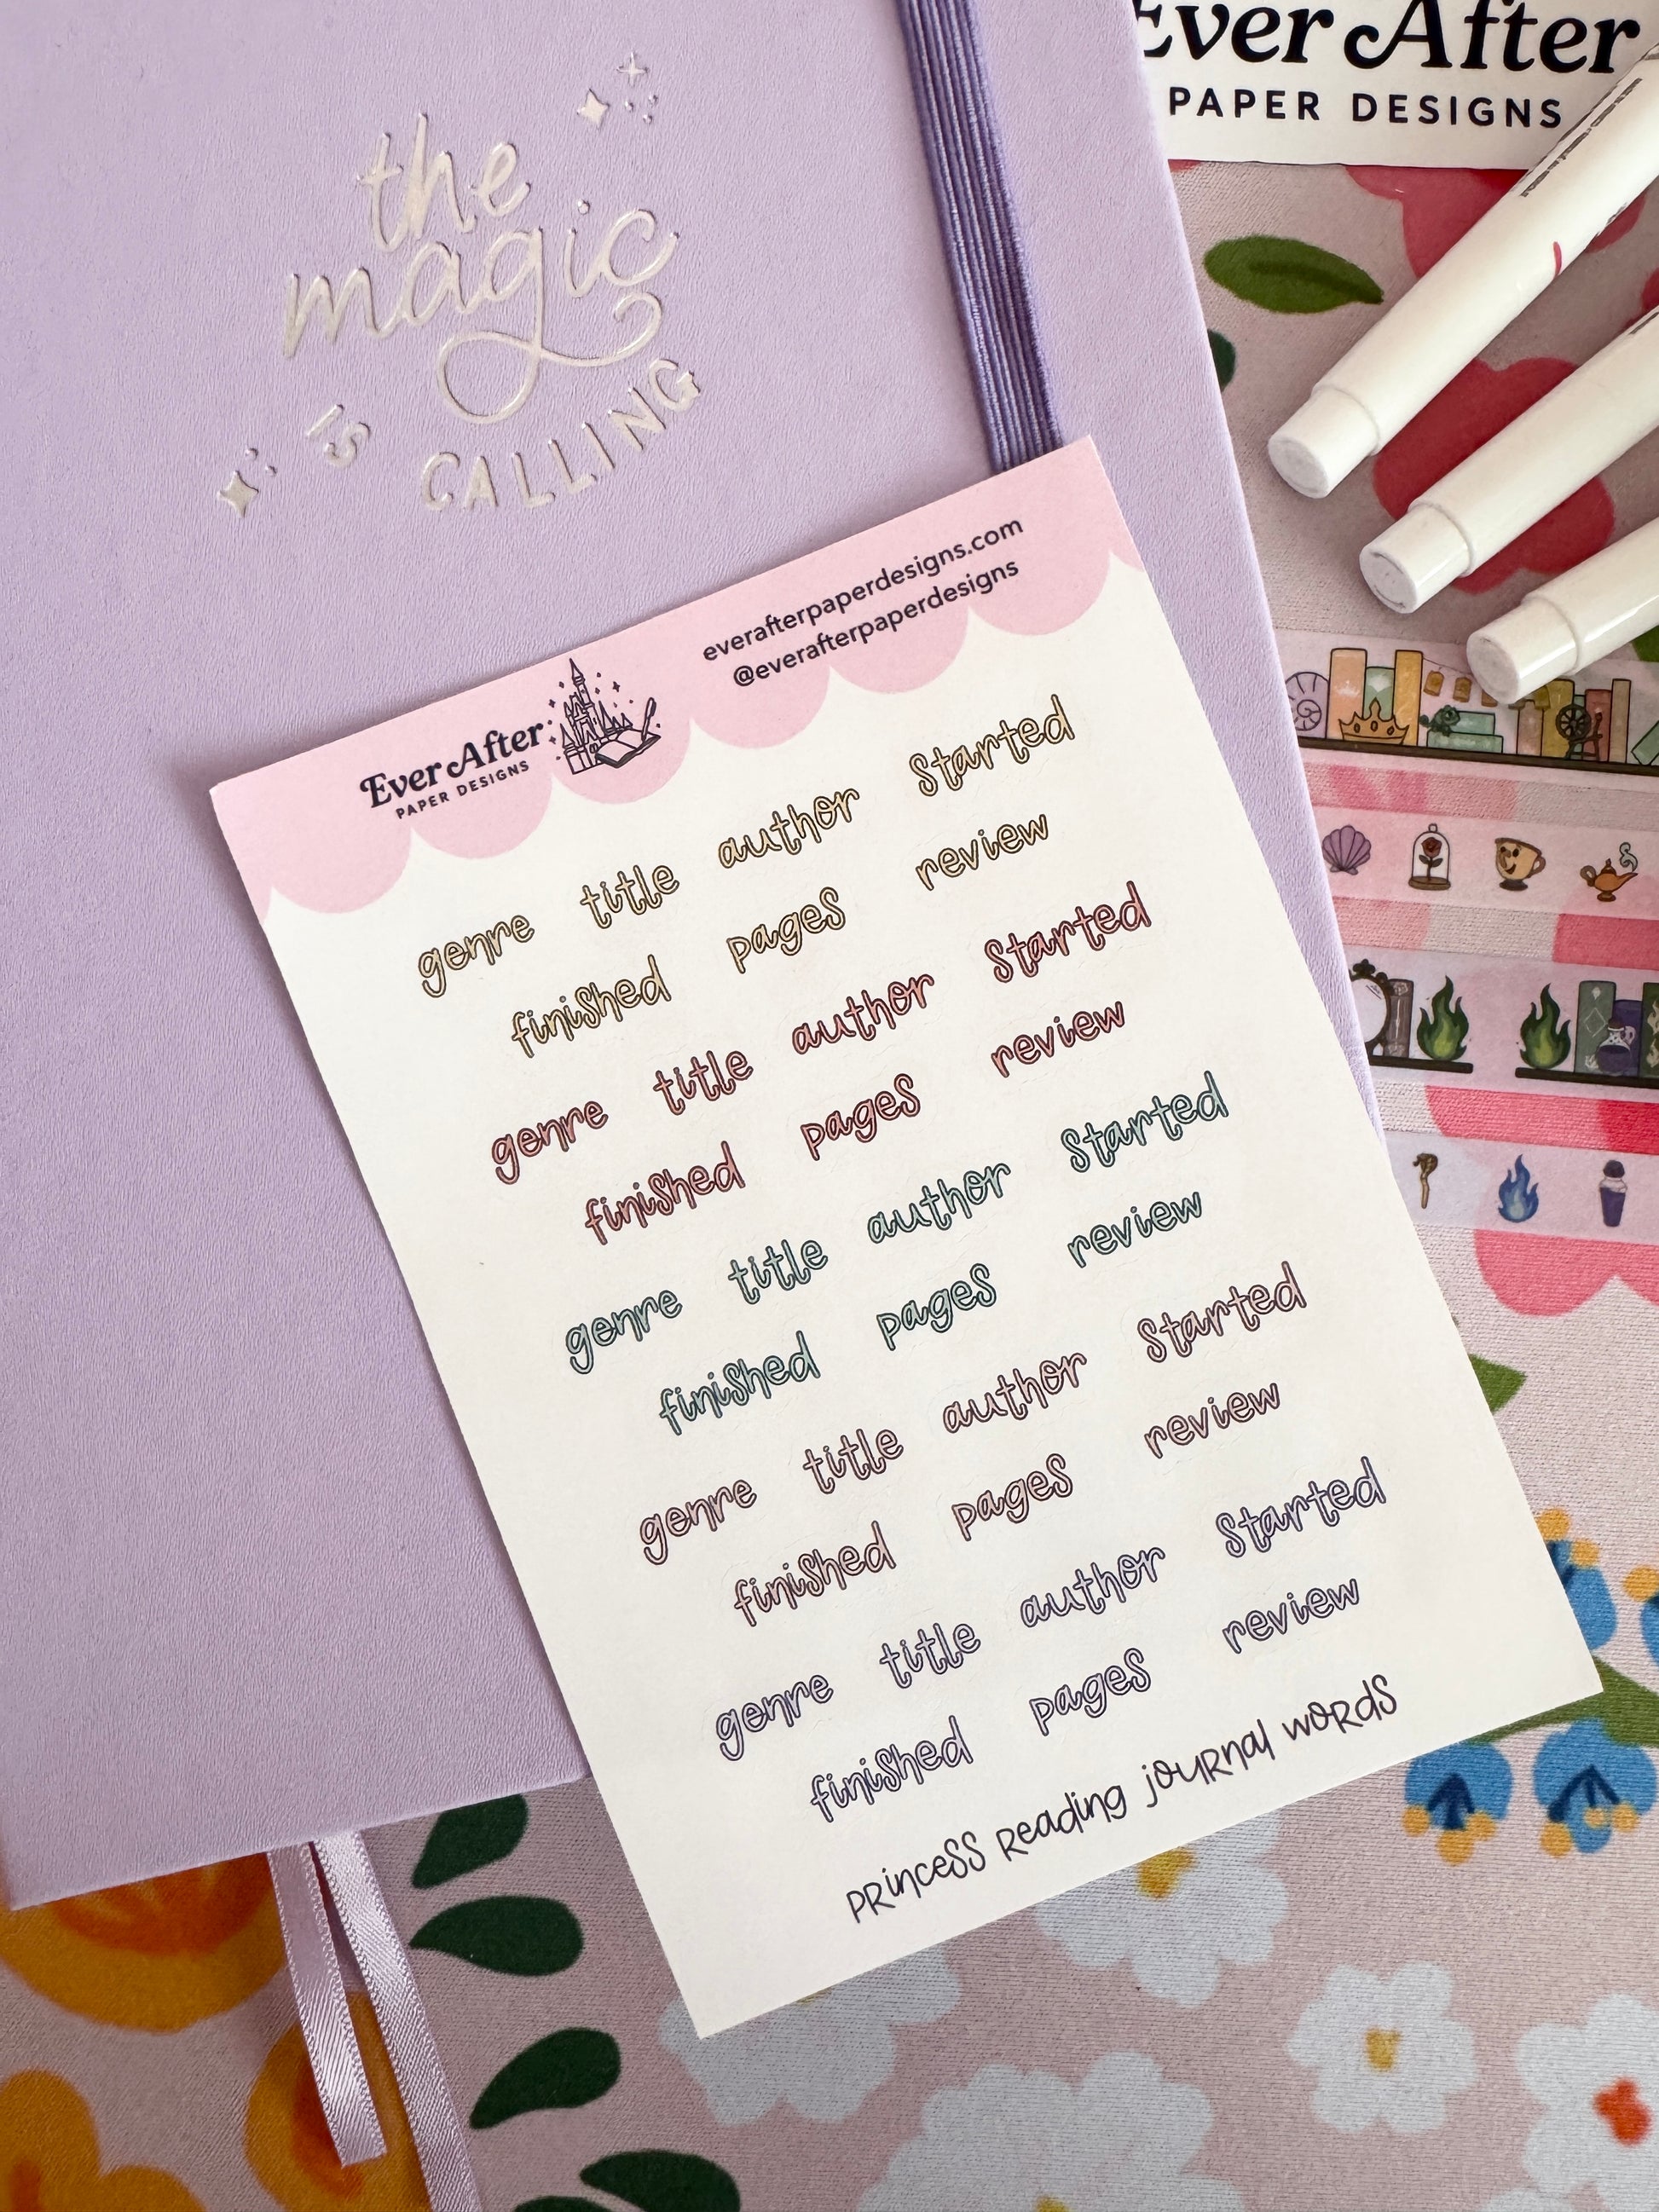 the
magic
is CALLING
Ever After
PAPER DESIGNS
everafterpaperdesigns.com
@everafterpaperdesigns
Ever After
PAPER DESIGNS
genre title author Started
finished pages review
genre title author Started
finished pages review
genre title author Started
finished pages review
genre title author Started
finished pages review
genre title author Started
finished pages review
PRinceSS Reading jouRnal woRdS